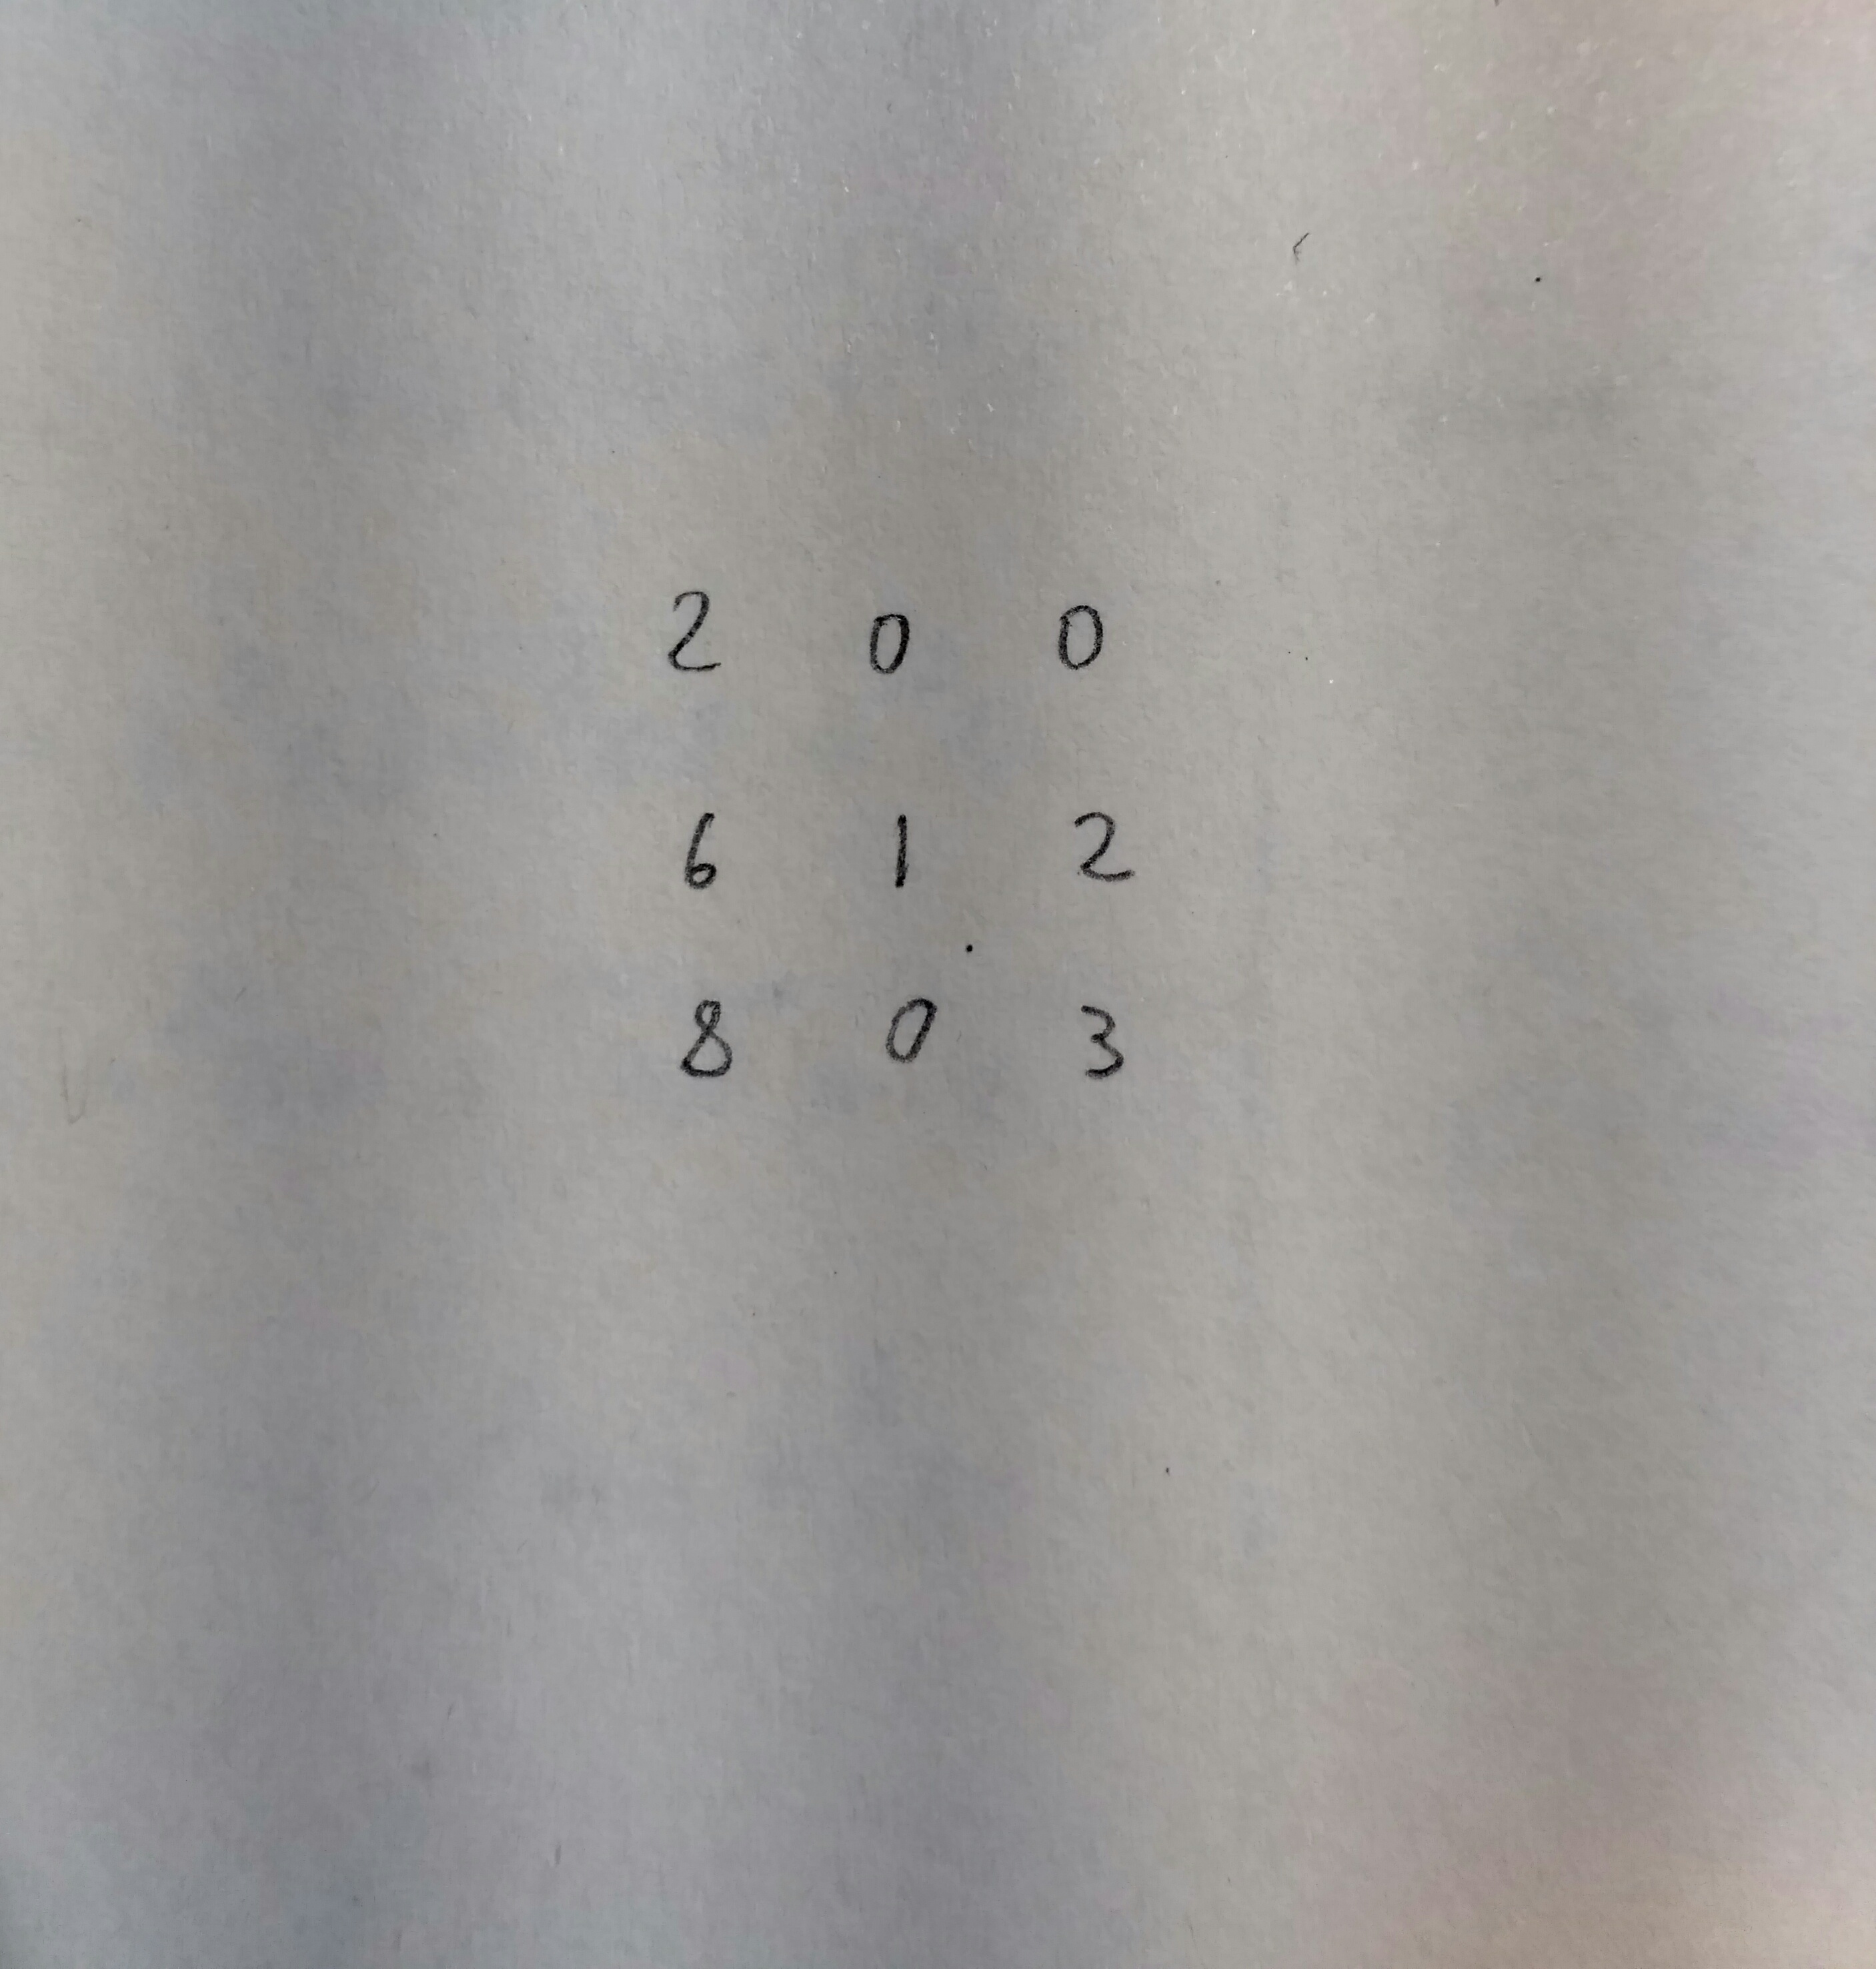 2 0 0
6 1 2
8 0 3